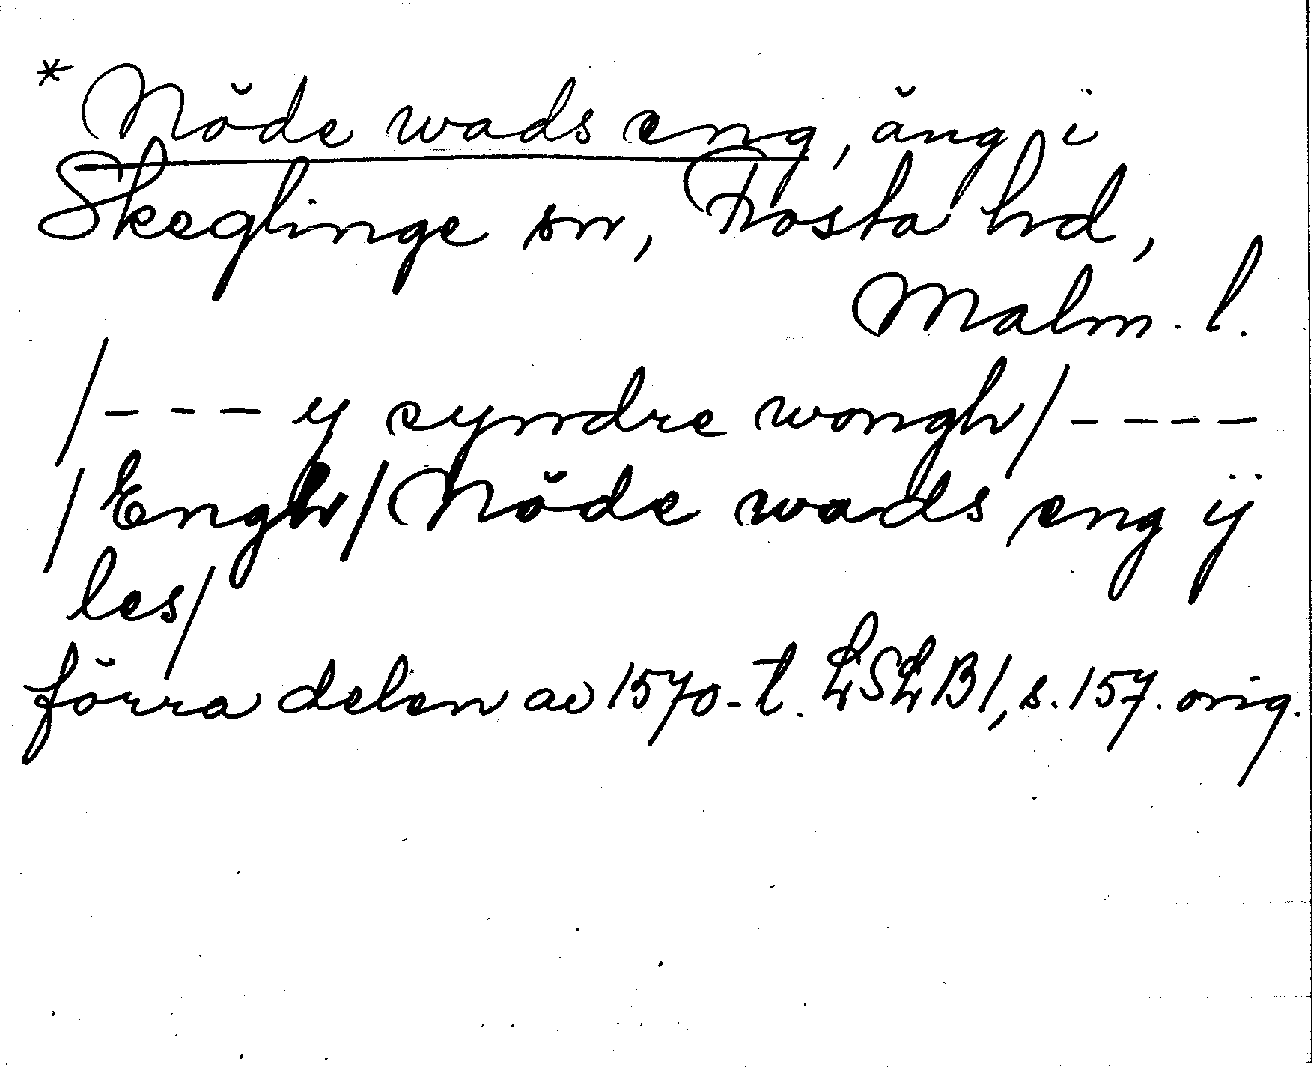 * Nöde wads eng, äng i
Skeglinge sn, Frosta hd,
Malm. l.
/- - - y syndre wongh/- - - -
/Engh/Nöde wads eng ÿ
les/
förra delen av 1570-t. LSLB1, s.157. orig.